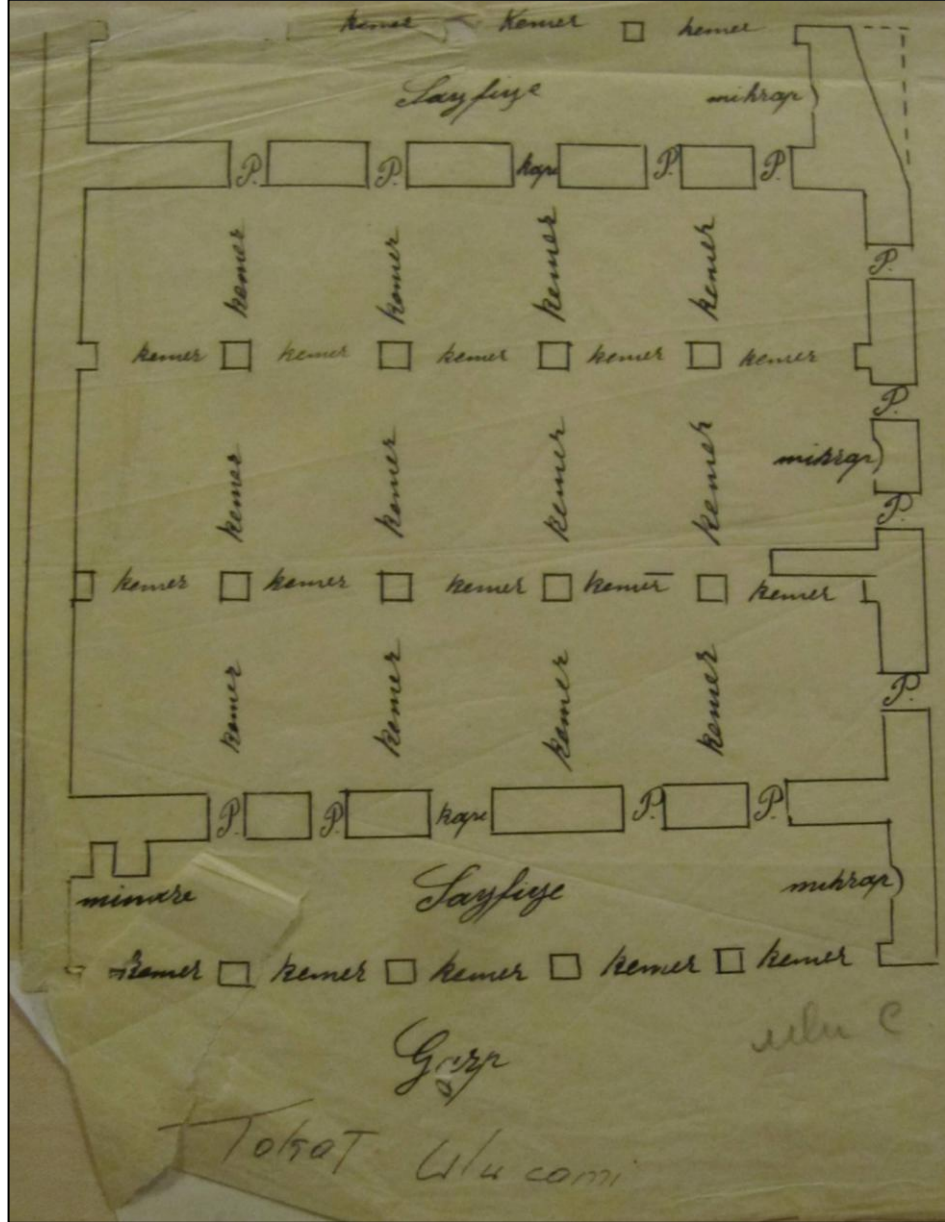 kemer Kemer kemer
Sayfiye mihrap
P. P. kapı P. P.
kemer kemer kemer kemer
P.
kemer kemer kemer kemer kemer
P.
kemer kemer kemer kemer
mihrap
P.
kemer kemer kemer kemer kemer
kemer kemer kemer kemer
P.
P. P. kapı P. P.
minare Sayfiye mihrap
kemer kemer kemer kemer kemer
Garp
Tokat Ulu cami